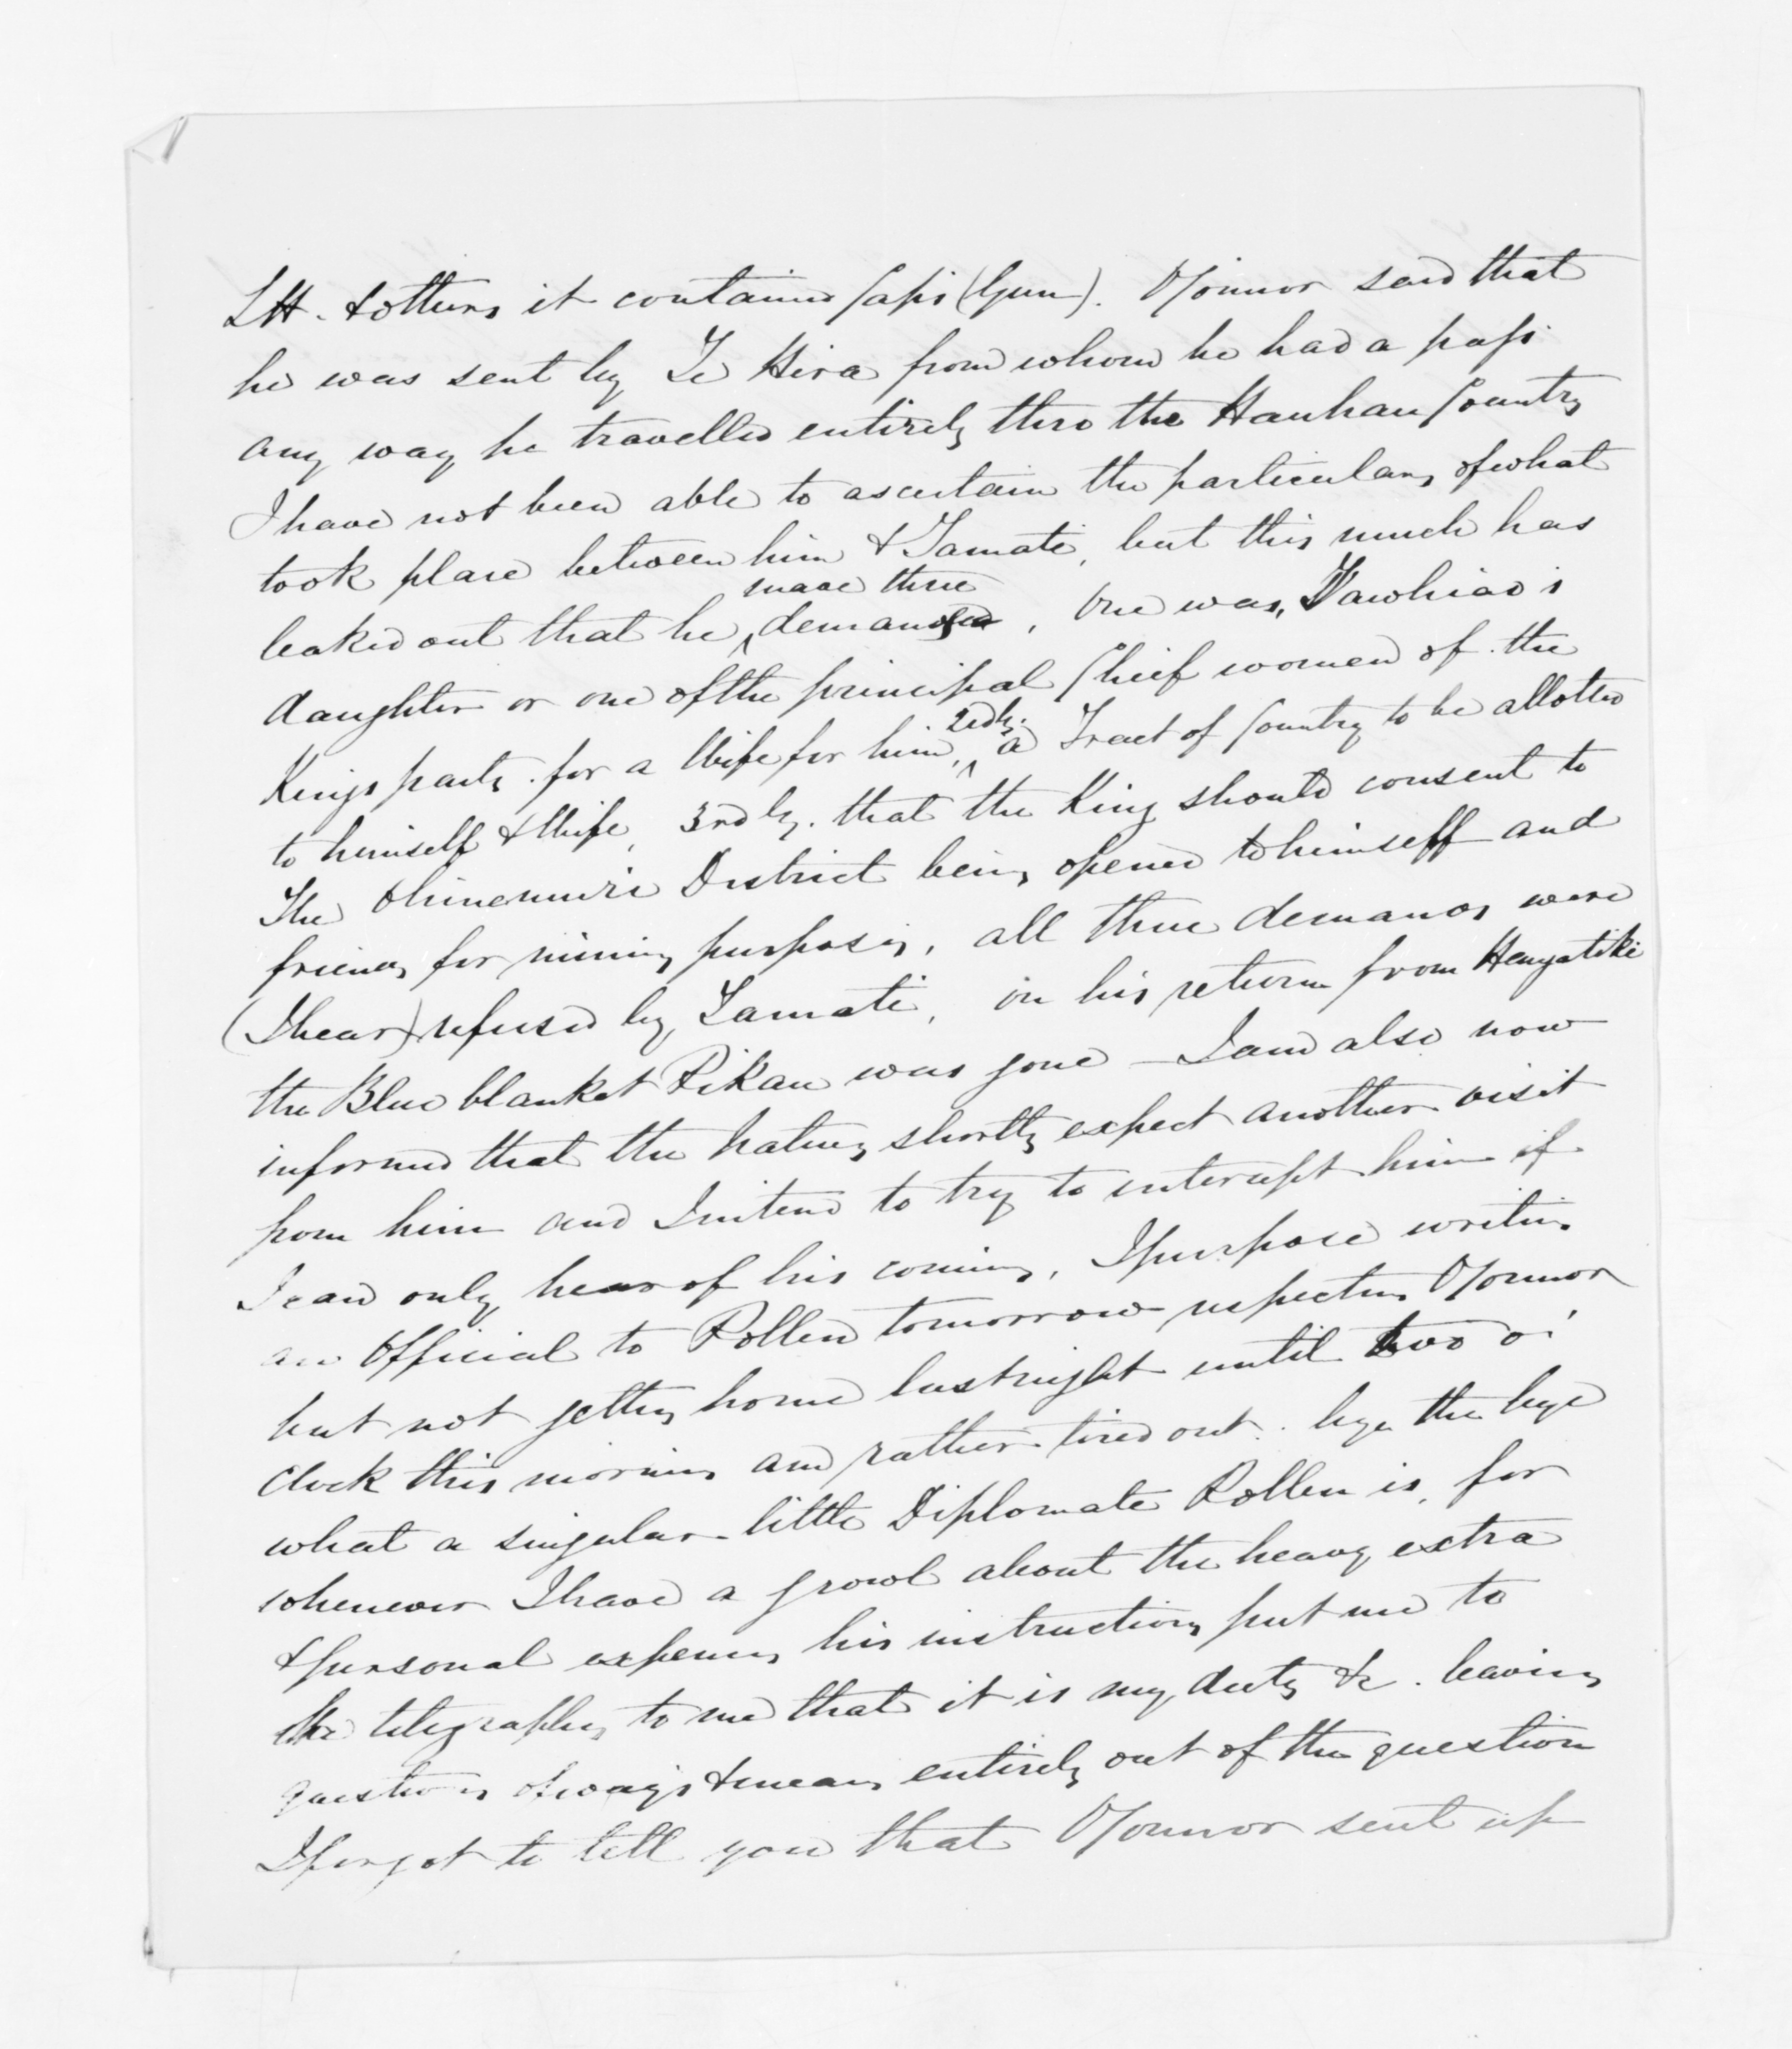 & others it contained Caps (Gun). O'Connor said that
he was sent by Te Hira from whom he had a pass
any way he travelled entirely thro the Hauhau Country
I have not been able to ascertain the particulars of what
took place between him & Tamati, but this much has
made three
leaked out that he demands, One was, Tawhiao's
daughter or one of the principal Chief women of the
2ndly.
Kings party. for a Wife for him, a Tract of Country to be allotted
to himself & Wife, 3rdly. that the King should consent to
The Ohinemuri District being opened to himself and
friends for mining purposes, all these demands were
(I hear) refused by Tamati, on his return from Hangatiki
the Blue blanket Pikau was gone - I am also now
informed that the Natives shortly expect another visit
from him and I intend to try to intercept him if
I can only hear of his coming, I purpose writing
an Official to Pollen tomorrow respecting O'Connor
but not getting home last night until two o'
clock this morning am rather tired out. bye the bye
what a singular little Diplomate Pollen is, for
whenever I have a growl about the heavy extra
& personal expenses his instructions put me to
he telegraphs to me that it is my duty &c. leaving
questions of ways & means entirely out of the question
I forgot to tell you that O'Connor sent up